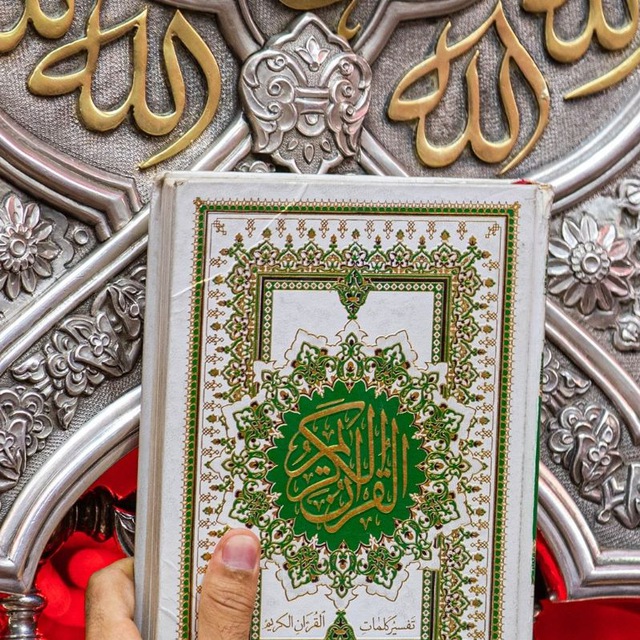 الله
الله
القرآن الكريم
تفسير كلمات القرآن الكريم